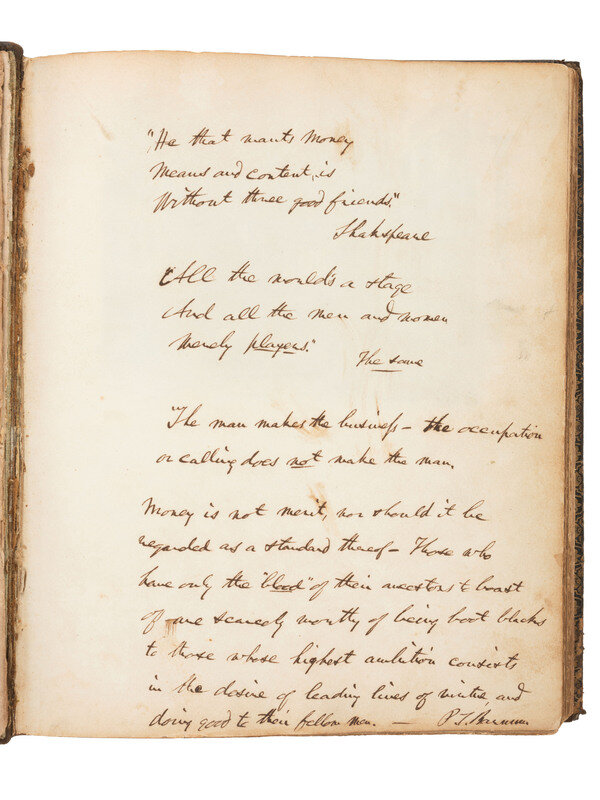 "He that wants Money
Means and content, is
Without three good friends."
Shakspeare
All the world's a stage
And all the men and women
Merely players."
The same
"The man makes the business – the occupation
or calling does not make the man.
Money is not merit, nor should it be
regarded as a standard thereof – Those who
have only the "blood" of their ancestors to boast
of are scarcely worthy of being boot blacks
to those whose highest ambition consists
in the desire of leading lives of virtue, and
doing good to their fellow men. — P. T. Barnum